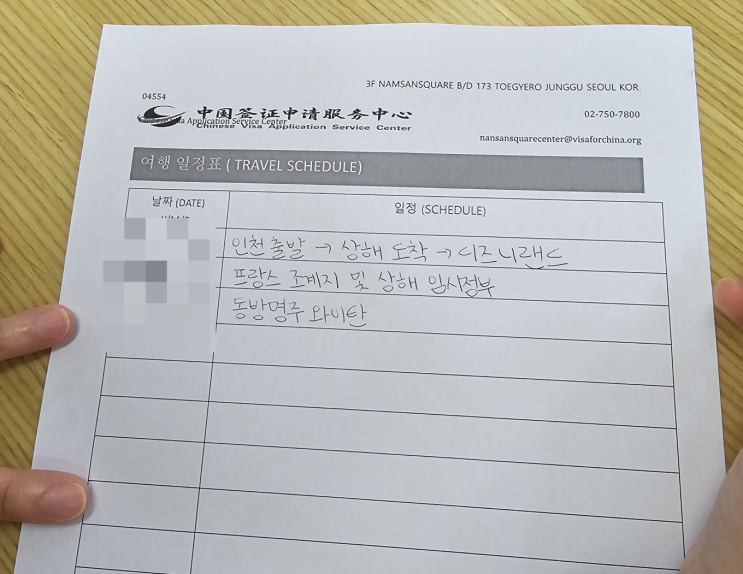 3F NAMSANSQUARE B/D 173 TOEGYERO JUNGGU SEOUL KOR
04554
中国签证申请服务中心
02-750-7800
Chinese Visa Application Service Center
nansansquarecenter@visaforchina.org
여행 일정표 ( TRAVEL SCHEDULE)
날짜 (DATE)
일정 (SCHEDULE)
인천 출발 → 상해 도착 → 디즈니랜드
프랑스 조계지 및 상해 임시정부
동방명주 와이탄